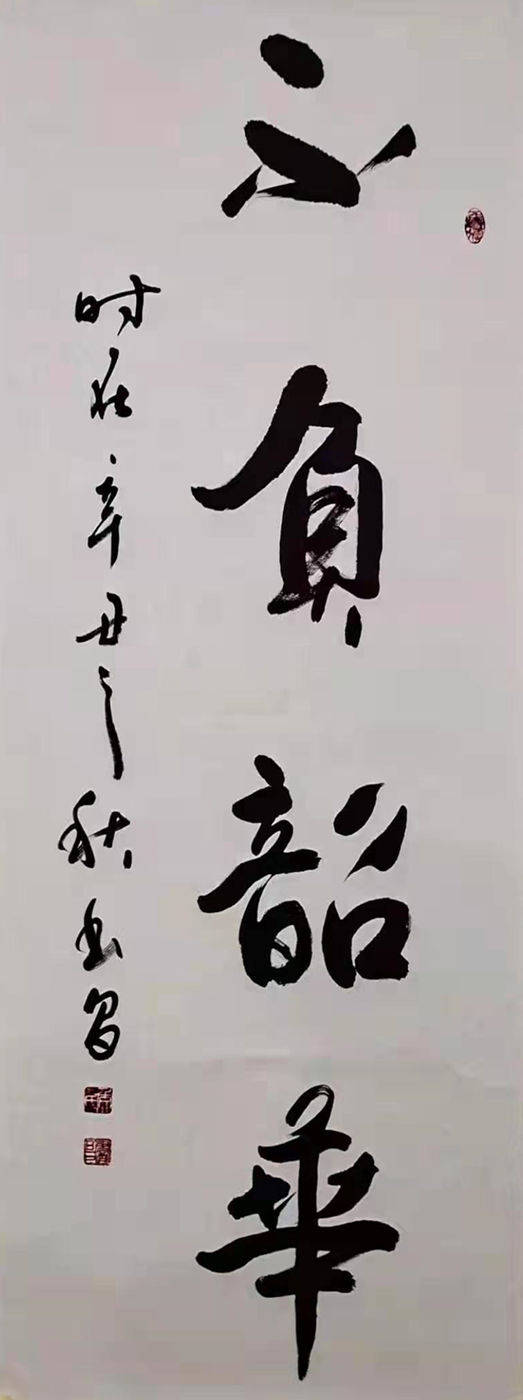 不负韶華
时在辛丑之秋书昌